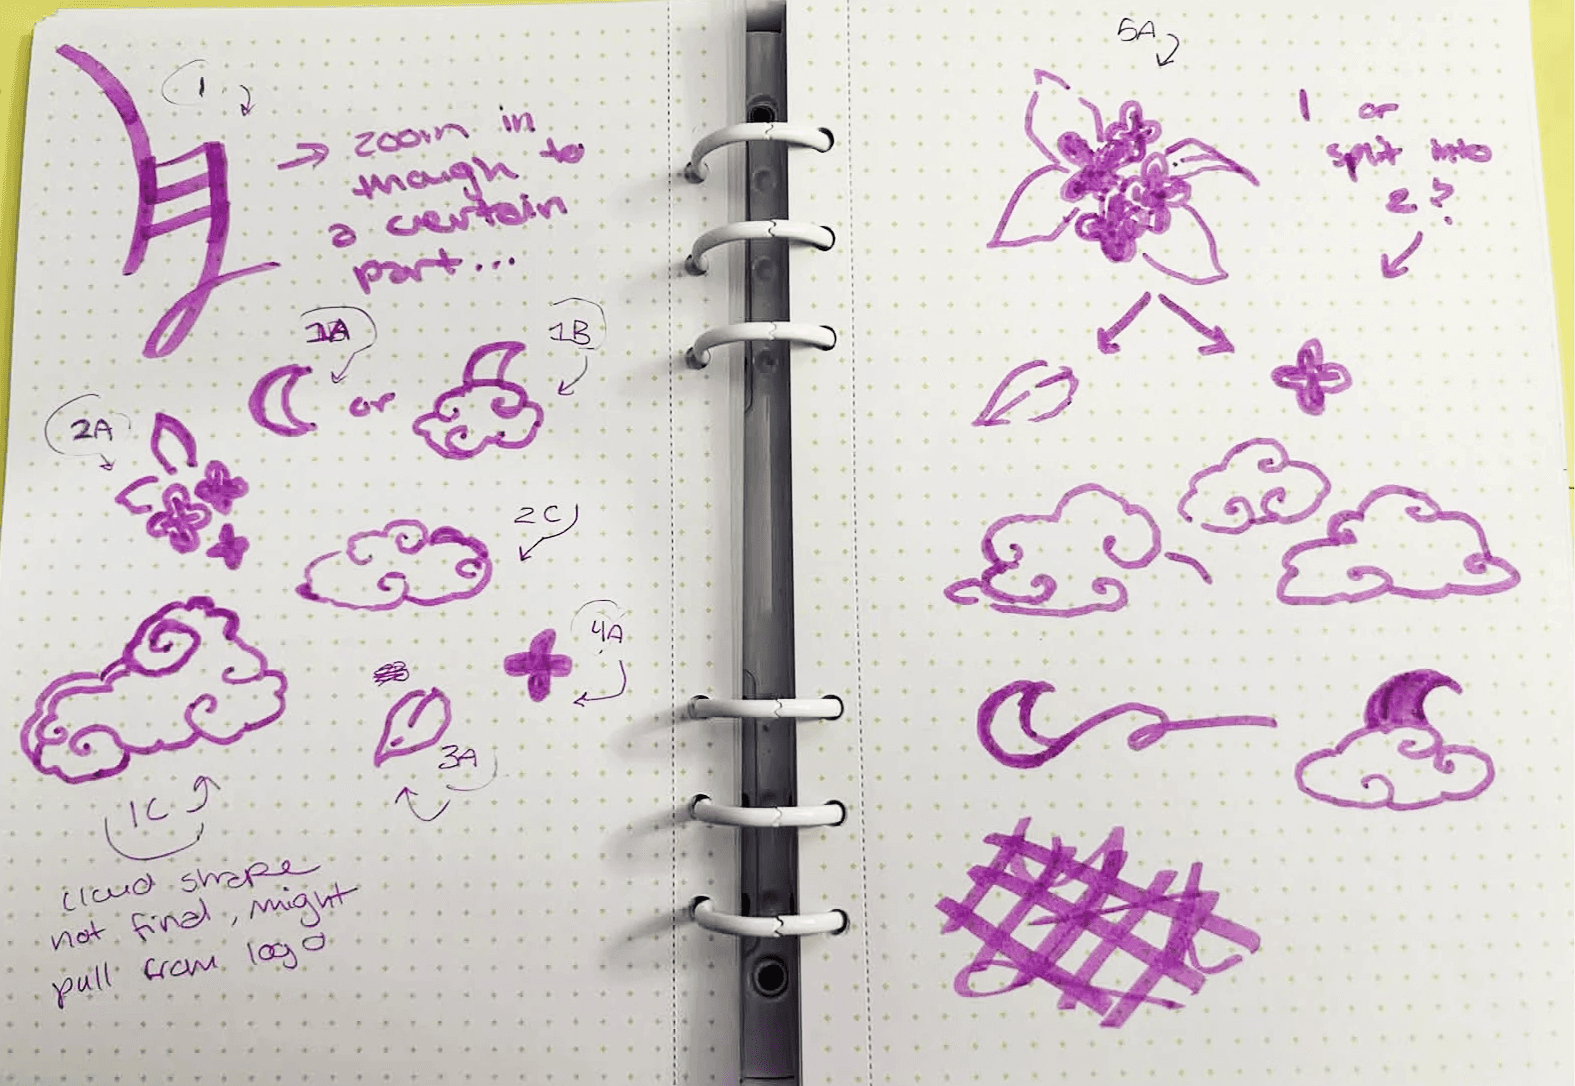 1
→ zoom in
though to
a certain
part...
1A
or
1B
2A
2C
4A
3A
1C
cloud shape
not final, might
pull from logo
5A
1 or
split into
2?